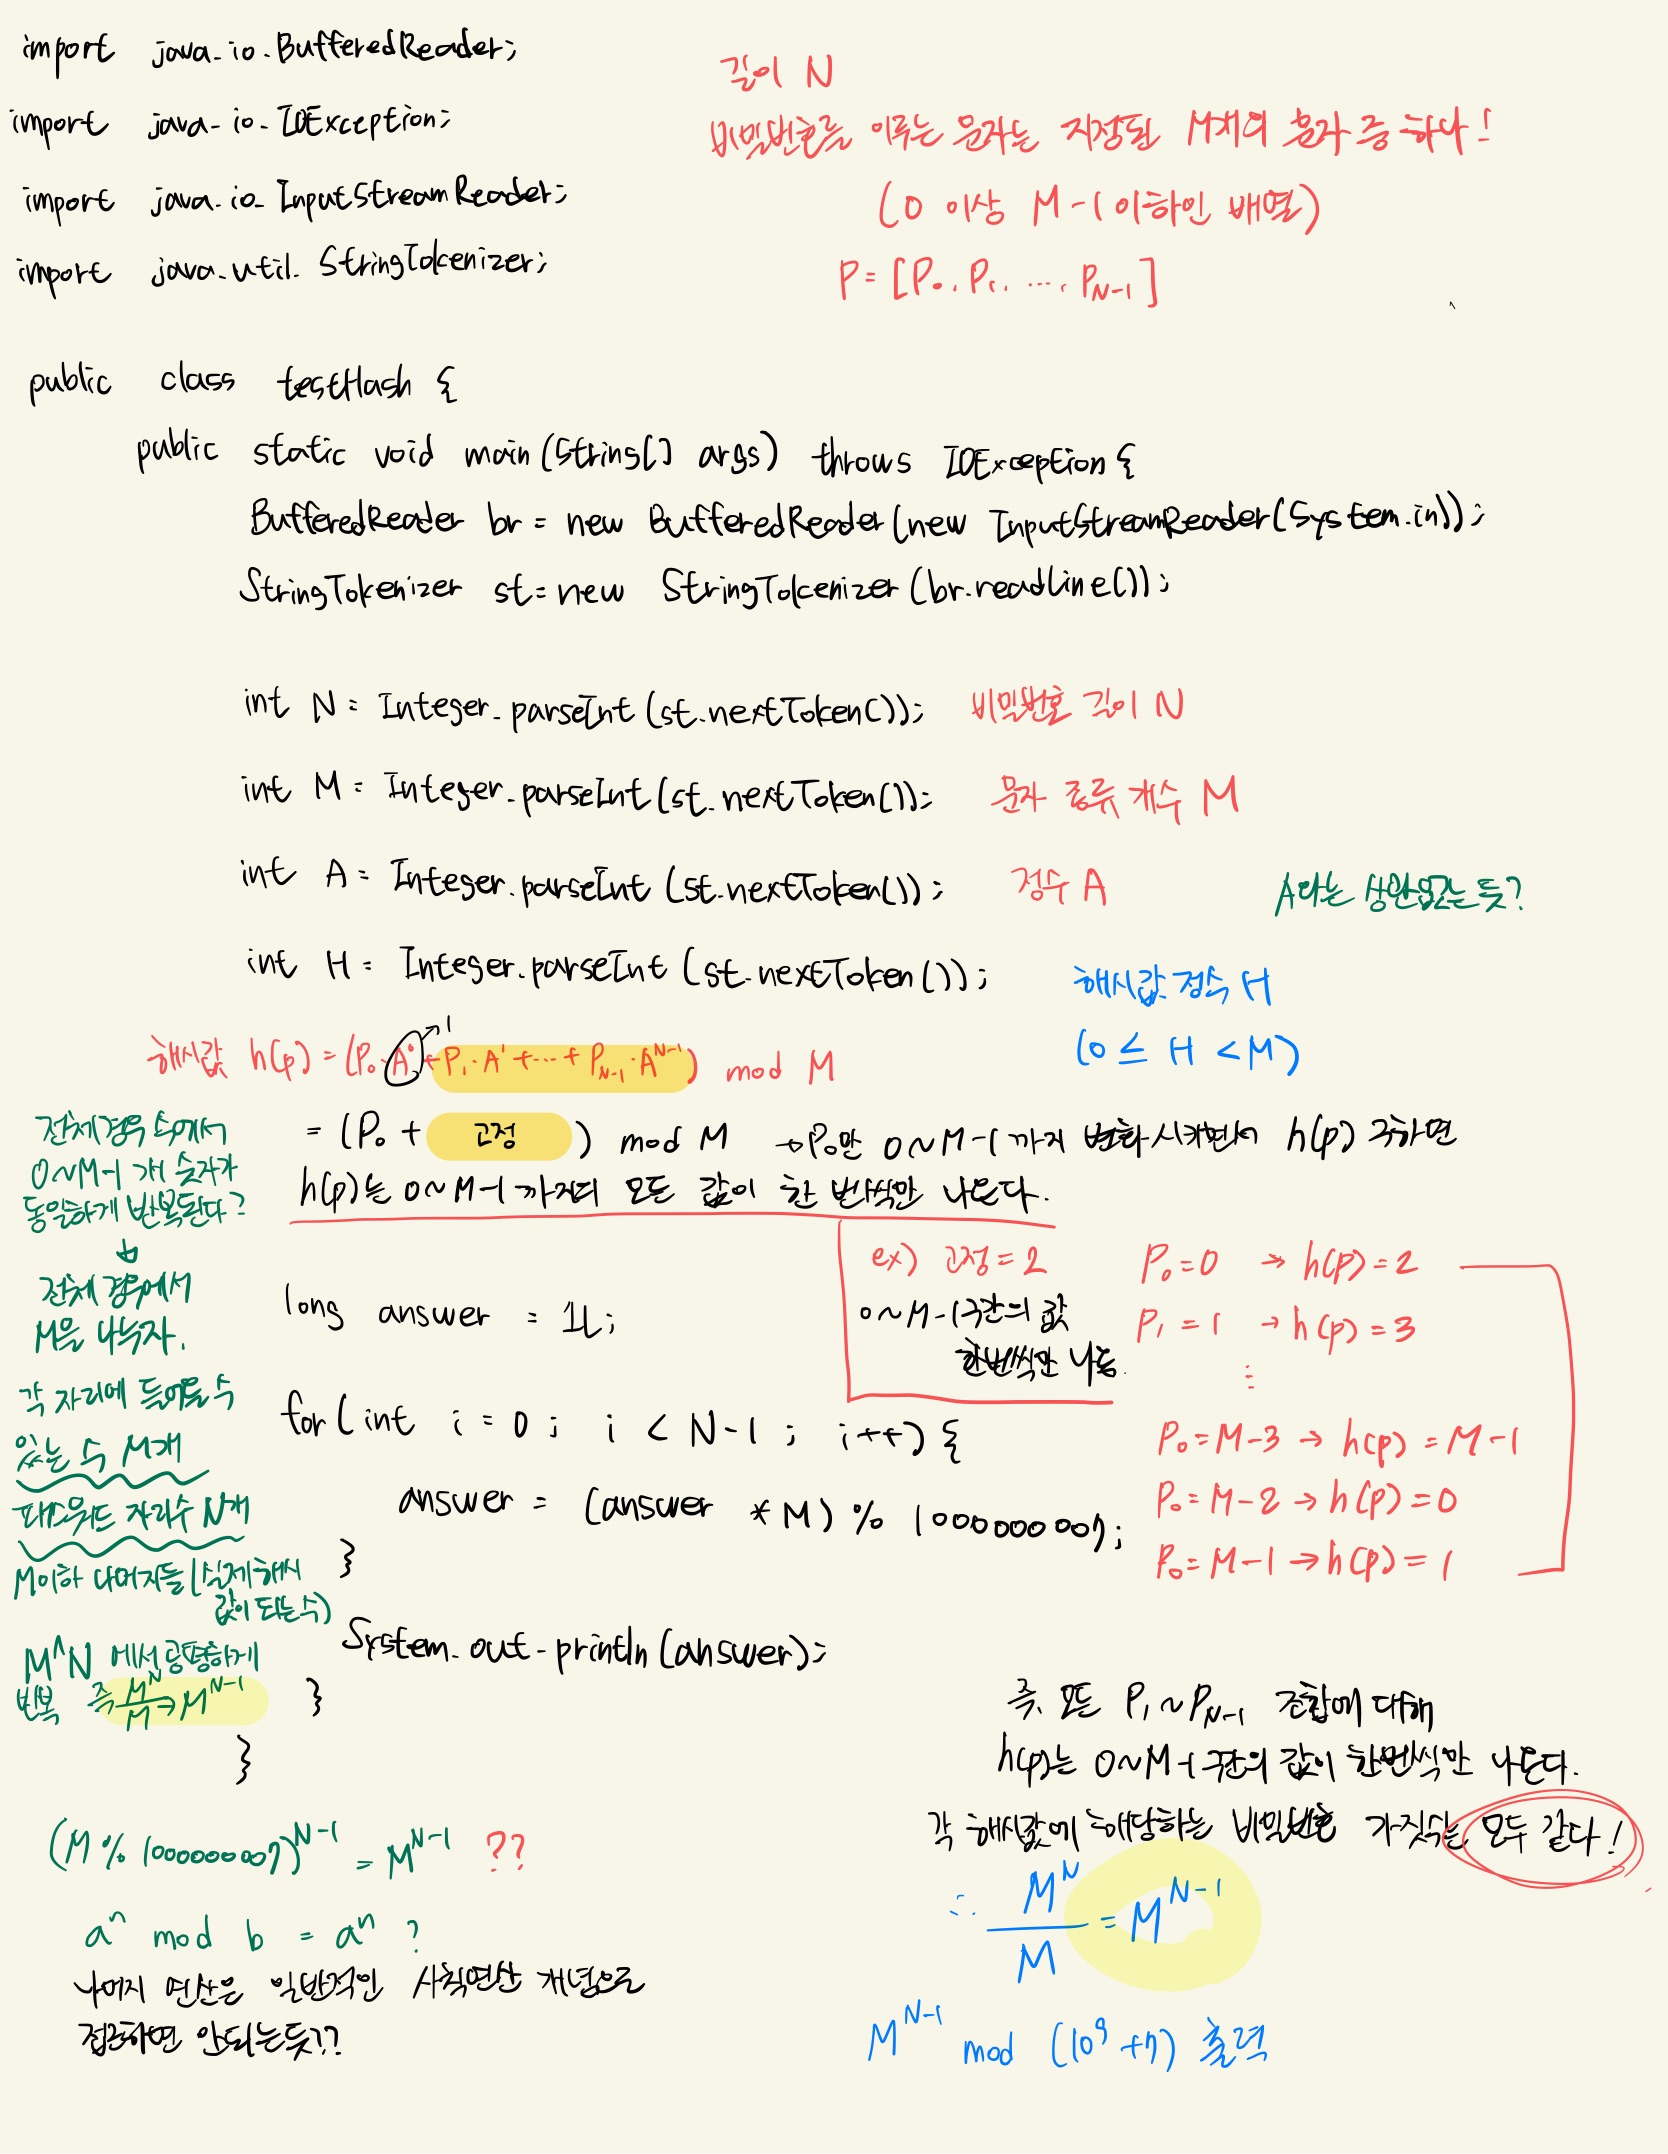 import java.io.BufferedReader;
import java.io.IOException;
import java.io.InputStreamReader;
import java.util.StringTokenizer;
길이 N
비밀번호를 이루는 문자는 지정된 M개의 문자 중 하나!
(0 이상 M-1 이하인 배열)
P = [P₀, P₁, ..., P_N-1]
public class testHash {
public static void main(String[] args) throws IOException {
BufferedReader br = new BufferedReader(new InputStreamReader(System.in));
StringTokenizer st = new StringTokenizer(br.readLine());
int N = Integer.parseInt(st.nextToken()); 비밀번호 길이 N
int M = Integer.parseInt(st.nextToken()); 문자 종류 개수 M
int A = Integer.parseInt(st.nextToken()); 정수 A A라는 상관없는듯?
int H = Integer.parseInt(st.nextToken()); 해시값 정수 H
(0 ≤ H < M)
해시값 h(p) = (P₀·A⁰ + P₁·A¹ + ... + P_N-1·A^N-1) mod M
→ 1
= (P₀ + 고정) mod M → P₀만 0~M-1까지 변화시키면서 h(p) 구하면
h(p)는 0~M-1까지의 모든 값이 한 번씩만 나온다.
전체 경우 속에서
0~M-1 개 숫자가
동일하게 반복된다?
↓
전체 경우에서
M을 나누자.
각 자리에 들어올 수
있는 수 M개
패스워드 자리수 N개
M이하 나머지들 (실제 해시
값이 되는 수)
M^N 에서 공평하게
반복 즉 M^N/M → M^N-1
ex) 고정 = 2
0~M-1구간의 값
한번씩만 나옴.
P₀=0 → h(p)=2
P₁=1 → h(p)=3
⋮
P₀=M-3 → h(p)=M-1
P₀=M-2 → h(p)=0
P₀=M-1 → h(p)=1
long answer = 1L;
for(int i = 0; i < N-1; i++) {
answer = (answer * M) % 1000000007;
}
System.out.println(answer);
}
}
즉, 모든 P₁~P_N-1 조합에 대해
h(p)는 0~M-1 구간의 값이 한번씩만 나온다.
각 해시값에 해당하는 비밀번호 가짓수는 모두 같다!
∴ M^N/M = M^N-1
M^N-1 mod (10⁹+7) 출력
(M % 1000000007)^N-1 = M^N-1 ??
aⁿ mod b = aⁿ ?
나머지 연산은 일반적인 사칙연산 개념으로
접근하면 안되는듯??